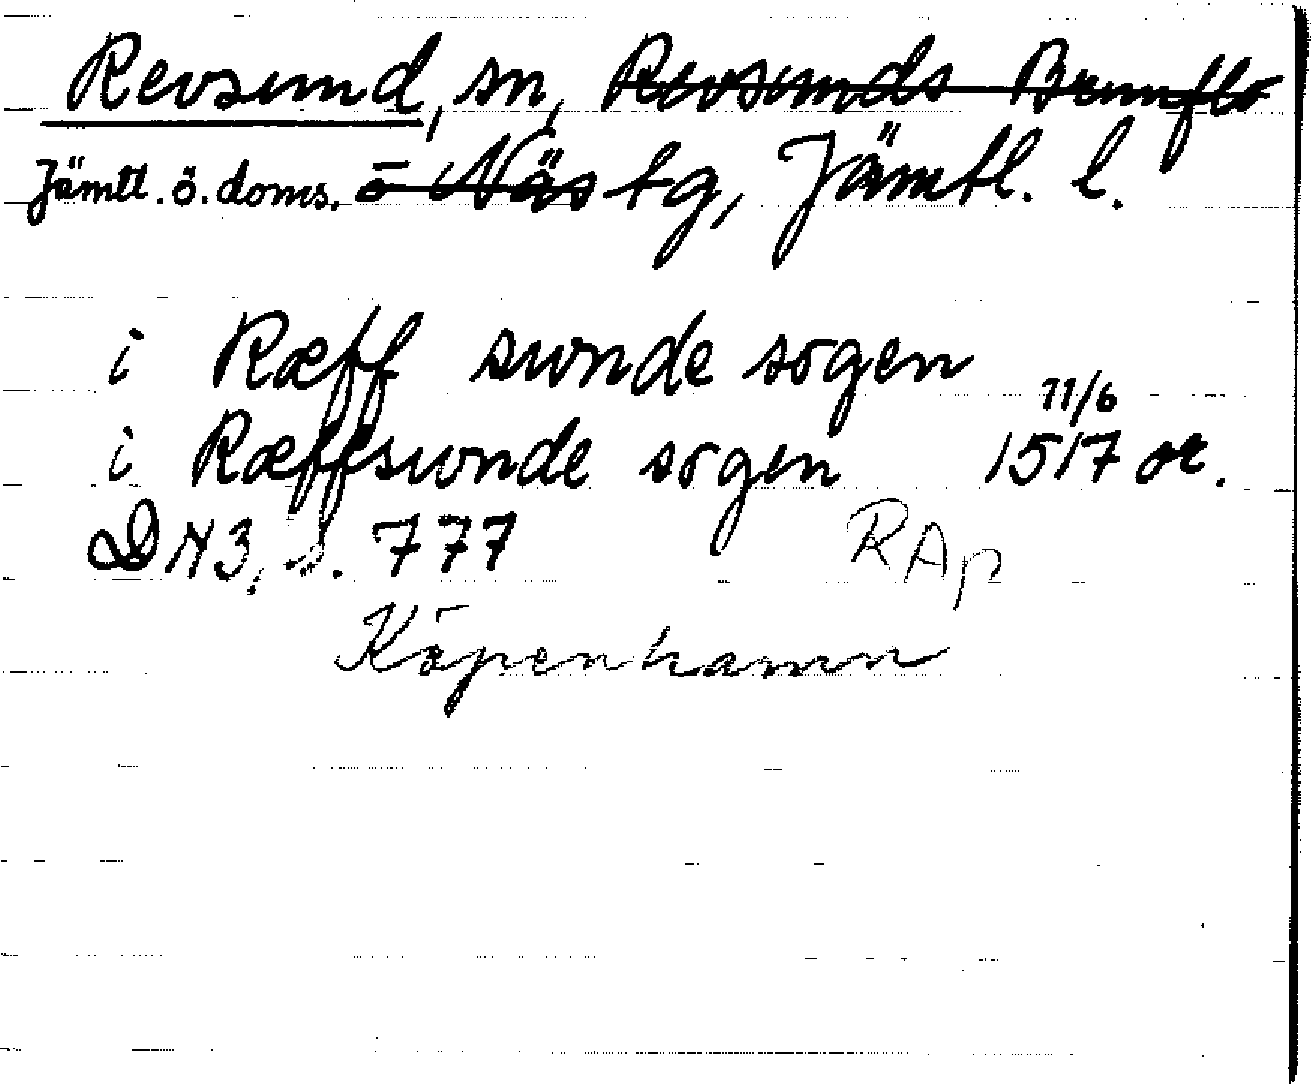 Revsund, sn, Revsunds Brunflo
Jämtl. ö. doms. o Näs tg, Jämtl. l.
i Ræff sunde sogen
i Ræffsunde sogen 11/6 1517 or.
DN 3, s. 777 RAp
Köpenhamn